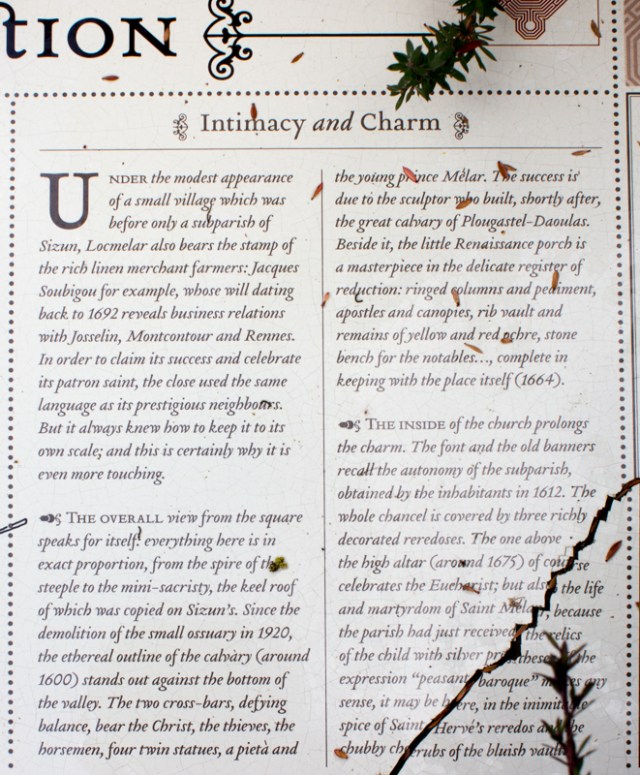 TION
Intimacy and Charm
UNDER the modest appearance
of a small village which was
before only a subparish of
Sizun, Locmelar also bears the stamp of
the rich linen merchant farmers: Jacques
Soubigou for example, whose will dating
back to 1692 reveals business relations
with Josselin, Montcontour and Rennes.
In order to claim its success and celebrate
its patron saint, the close used the same
language as its prestigious neighbours.
But it always knew how to keep it to its
own scale; and this is certainly why it is
even more touching.
THE OVERALL view from the square
speaks for itself: everything here is in
exact proportion, from the spire of the
steeple to the mini-sacristy, the keel roof
of which was copied on Sizun's. Since the
demolition of the small ossuary in 1920,
the ethereal outline of the calvary (around
1600) stands out against the bottom of
the valley. The two cross-bars, defying
balance, bear the Christ, the thieves, the
horsemen, four twin statues, a pietà and
the young prince Mélar. The success is
due to the sculptor who built, shortly after,
the great calvary of Plougastel-Daoulas.
Beside it, the little Renaissance porch is
a masterpiece in the delicate register of
reduction: ringed columns and pediment,
apostles and canopies, rib vault and
remains of yellow and red ochre, stone
bench for the notables..., complete in
keeping with the place itself (1664).
THE INSIDE of the church prolongs
the charm. The font and the old banners
recall the autonomy of the subparish,
obtained by the inhabitants in 1612. The
whole chancel is covered by three richly
decorated reredoses. The one above
the high altar (around 1675) of course
celebrates the Eucharist; but also the life
and martyrdom of Saint Mélar, because
the parish had just received the relics
of the child with silver prostheses. If the
expression "peasant baroque" makes any
sense, it may be here, in the inimitable
spice of Saint Hervé's reredos and the
chubby cherubs of the bluish vault